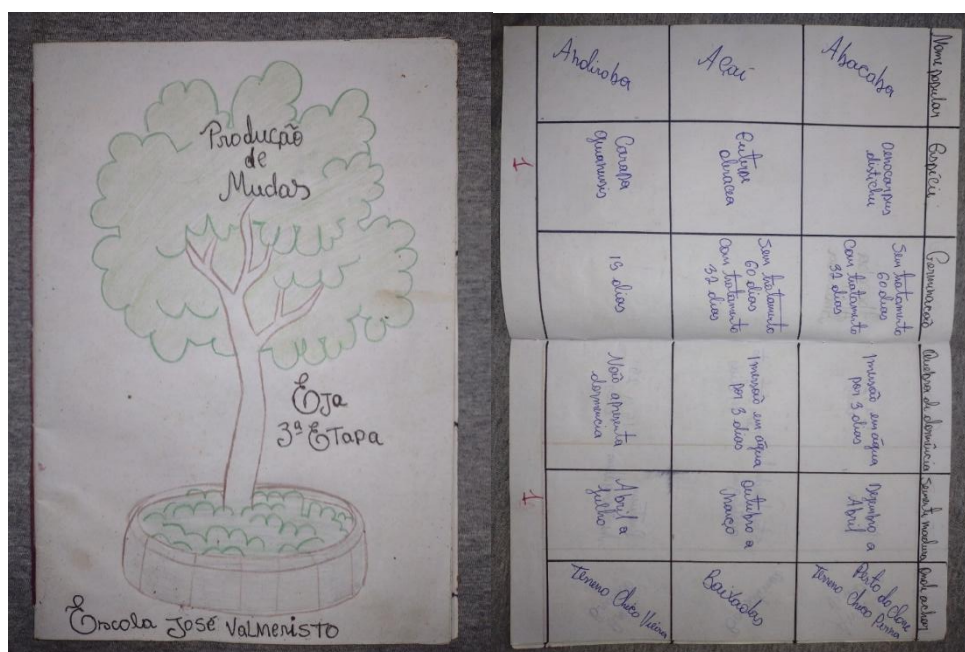 Produção
de
Mudas
EJA
3ª ETAPA
Escola José Valmeristo
Nome popular
Espécie
Germinação
Quebra de dormência
Semente madura
Onde achar
Abacaba
Oenocarpus
distichu
Sem tratamento
60 dias
Com tratamento
32 dias
Imersão em água
por 3 dias
Dezembro a
Abril
Perto do
Terreno Chico
Açaí
Euterpe
oleracea
Sem tratamento
60 dias
Com tratamento
32 dias
Imersão em água
por 3 dias
Outubro a
Março
Baixadas
Andiroba
Carapa
guianensis
15 dias
Não apresenta
dormencia
Abril a
Julho
Terreno Chico Vieira
1
1